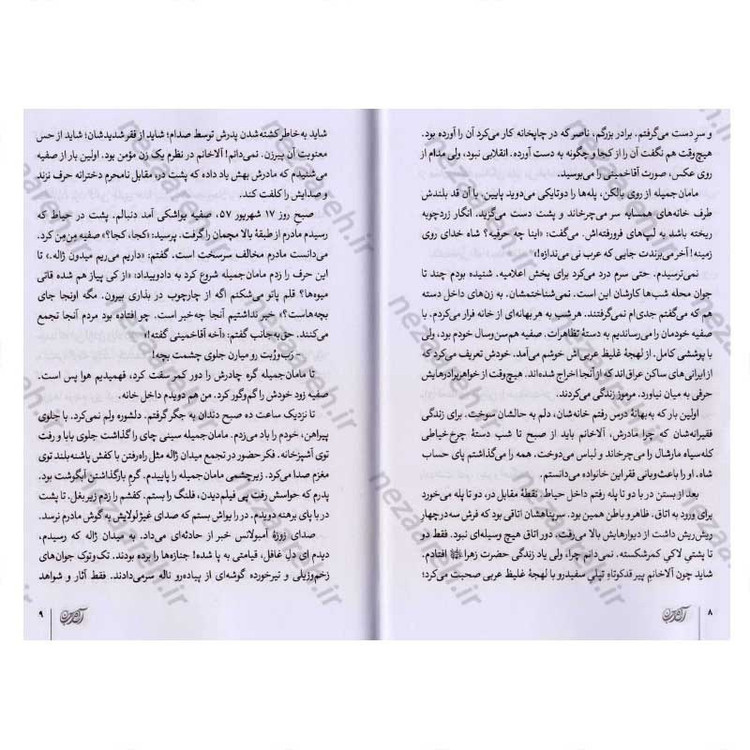 و سر دست می‌گرفتم. برادر بزرگم، ناصر که در چاپخانه کار می‌کرد آن را آورده بود.
هیچ‌وقت هم نگفت آن را از کجا و چگونه به دست آورده. انقلابی نبود، ولی مدام از
روی عکس، صورت آقاخمینی را می‌بوسید.
مامان‌جمیله از روی بالکن، پله‌ها را دوتایکی می‌دوید پایین. با آن قد بلندش
طرف خانه‌های همسایه سر می‌چرخاند و پشت دست می‌گزید. انگار زردچوبه
ریخته باشد به لپ‌های فرورفته‌اش. می‌گفت: «اینا چه حرفیه؟ شاه خدای روی
زمینه! آخر می‌برندت جایی که عرب نی می‌ندازه!»
نمی‌ترسیدم. حتی سرم درد می‌کرد برای پخش اعلامیه. شنیده بودم چند تا
جوان محله شب‌ها کارشان این است. نمی‌شناختمشان. به زن‌های داخل دسته
هم که می‌گفتم جدی‌ام نمی‌گرفتند. هر شب به هر بهانه‌ای از خانه فرار می‌کردم. با
صفیه خودمان را می‌رساندیم به دستهٔ تظاهرات. صفیه هم‌سن‌وسال خودم بود، ولی
با پوششی کامل. از لهجهٔ غلیظ عربی‌اش خوشم می‌آمد. خودش تعریف می‌کرد که
از ایرانی‌های ساکن عراق‌اند که از آنجا اخراج شده‌اند. هیچ‌وقت از خواهربرادرهایش
حرفی به میان نیاورد. مرموز زندگی می‌کردند.
اولین بار که به‌بهانهٔ درس رفتم خانه‌شان، دلم به حالشان سوخت. برای زندگی
فقیرانه‌شان که چرا مادرش، آلاخانم باید از صبح تا شب دستهٔ چرخ‌خیاطی
کله‌سیاه مارشال را می‌چرخاند و لباس می‌دوخت. همه را می‌گذاشتم پای حساب
شاه. او را باعث‌وبانی فقر این خانواده می‌دانستم.
بعد از بستن در با دو تا پله رفتم داخل حیاط. نقطهٔ مقابل در، دو تا پله می‌خورد
برای ورود به اتاق. ظاهر و باطن همین بود. سرپناهشان اتاقی بود که فرش سه‌درچهار
ریش‌ریش داشت از دیوارهایش بالا می‌رفت. دور اتاق هیچ وسیله‌ای نبود. فقط دو
تا پشتی لاکی کمرشکسته. نمی‌دانم چرا، ولی یاد زندگی حضرت زهرا افتادم.
شاید چون آلاخانم پیر قدکوتاهِ تپلی سفیدرو با لهجهٔ غلیظ عربی صحبت می‌کرد؛
۸
شاید به خاطر کشته شدن پدرش توسط صدام؛ شاید از فقر شدیدشان؛ شاید از حس
معنویت آن پیرزن. نمی‌دانم! آلاخانم در نظرم یک زن مؤمن بود. اولین بار از صفیه
می‌شنیدم که مادرش بهش یاد داده که پشت در، مقابل نامحرم دخترانه حرف نزند
و صدایش را کلفت کند.
صبح روز ۱۷ شهریور ۵۷، صفیه یواشکی آمد دنبالم. پشت در حیاط که
رسیدم مادرم از طبقهٔ بالا مچمان را گرفت. پرسید: «کجا، کجا؟» صفیه مِن‌مِن کرد.
می‌دانست مادرم مخالف سرسخت است. گفتم: «داریم می‌ریم میدون ژاله.» تا
این حرف را زدم مامان‌جمیله شروع کرد به دادوبیداد: «از کی پیاز هم شده قاتی
میوه‌ها؟ قلم پاتو می‌شکنم اگه از چارچوب در بذاری بیرون. مگه اونجا جای
بچه‌هاست؟» خبر نداشتیم آنجا چه‌خبر است. چو افتاده بود مردم آنجا تجمع
می‌کنند. حق‌به‌جانب گفتم: «آخه آقاخمینی گفته!»
- رَب‌ورُبت رو میارن جلوی چشمت بچه!
تا مامان‌جمیله گره چادرش را دور کمر سفت کرد، فهمیدیم هوا پس است.
صفیه زود خودش را گم‌وگور کرد. من هم دویدم داخل خانه.
تا نزدیک ساعت ده صبح دندان به جگر گرفتم. دلشوره ولم نمی‌کرد. با جلوی
پیراهن، خودم را باد می‌زدم. مامان‌جمیله سینی چای را گذاشت جلوی بابا و رفت
توی آشپزخانه. فکر حضور در تجمع میدان ژاله مثل راه‌رفتن با کفش پاشنه‌بلند توی
مغزم صدا می‌کرد. زیرچشمی مامان‌جمیله را پاییدم. گرم بارگذاشتن آبگوشت بود.
پدرم که حواسش رفت پی فیلم‌دیدن، فلنگ را بستم. کفشم را زدم زیربغل. تا پشت
در با پای برهنه دویدم. در را یواش بستم که صدای غیژ لولایش به گوش مادرم نرسد.
صدای زوزهٔ آمبولانس خبر از حادثه‌ای می‌داد. به میدان ژاله که رسیدم،
دیدم ای دل غافل، قیامتی به پا شده! جنازه‌ها را برده بودند. تک‌وتوک جوان‌های
زخم‌وزیلی و تیرخورده گوشه‌ای از پیاده‌رو ناله سر می‌دادند. فقط آثار و شواهد
۹
nezaareh.ir